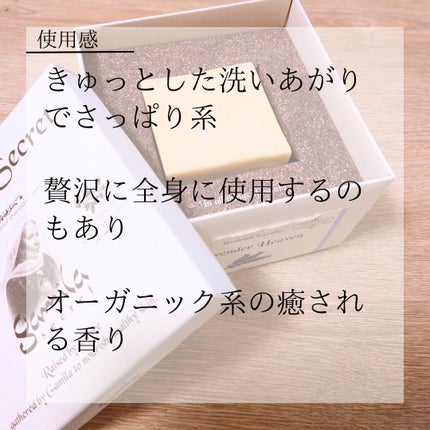 使用感
きゅっとした洗いあがり
でさっぱり系
贅沢に全身に使用するの
もあり
オーガニック系の癒され
る香り
Secret
Lavender Heaven
Gamila
Raised by
gathered by Gamila to nourish healthy